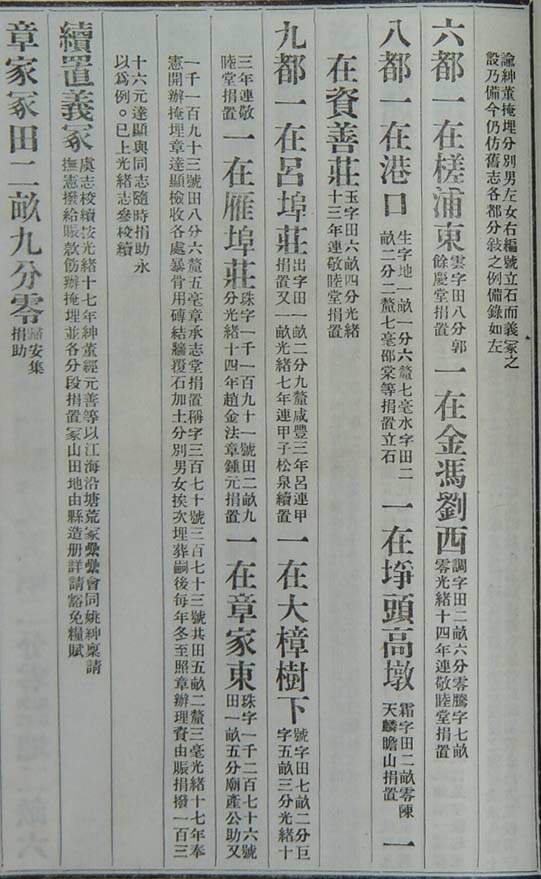 諭紳董掩埋分別男左女右編號立石而義冢之
設乃備今仍仿舊志各都分敍之例備錄如左
六都一在槎浦東雲字田八分郭餘慶堂捐置 一在金馮劉西調字田二畝六分零騰字七畝零光緒十四年連敬睦堂捐置
八都一在港口生字地一畝一分六釐七毫水字田二畝二分二釐七毫邵棠等捐置立石 一在埩頭高墩霜字田二畝零陳天麟瞻山捐置 一
在資善莊玉字田六畝四分光緒十三年連敬睦堂捐置
九都一在呂埠莊出字田一畝二分九釐咸豐三年呂連甲捐置又一畝光緒七年連甲子松泉續置 一在大樟樹下號字田七畝二分巨字五畝三分光緒十
三年連敬睦堂捐置 一在雁埠莊珠字一千一百九十一號田二畝九分光緒十四年趙金法章鍾元捐置 一在章家東珠字一千二百七十六號田一畝五分廟產公助又
一千一百九十三號田八分六釐五毫章承志堂捐置稱字三百七十號三百七十三號共田五畝二釐三毫光緒十七年奉
憲開辦掩埋章達顯檢收各處暴骨用磚結牆覆石加土分別男女挨次埋葬嗣後每年冬至照章辦理資由賬捐撥一百三
十六元達顯與同志隨時捐助永
以爲例。已上光緒志參校續
續置義冢虞志校續按光緒十七年紳董經元善等以江海沿塘荒冢纍纍會同姚紳稟請撫憲撥給賬款飭辦掩埋並各分段捐置冢山田地由縣造册詳請豁免糧賦
章家冢田二畝九分零安集捐助